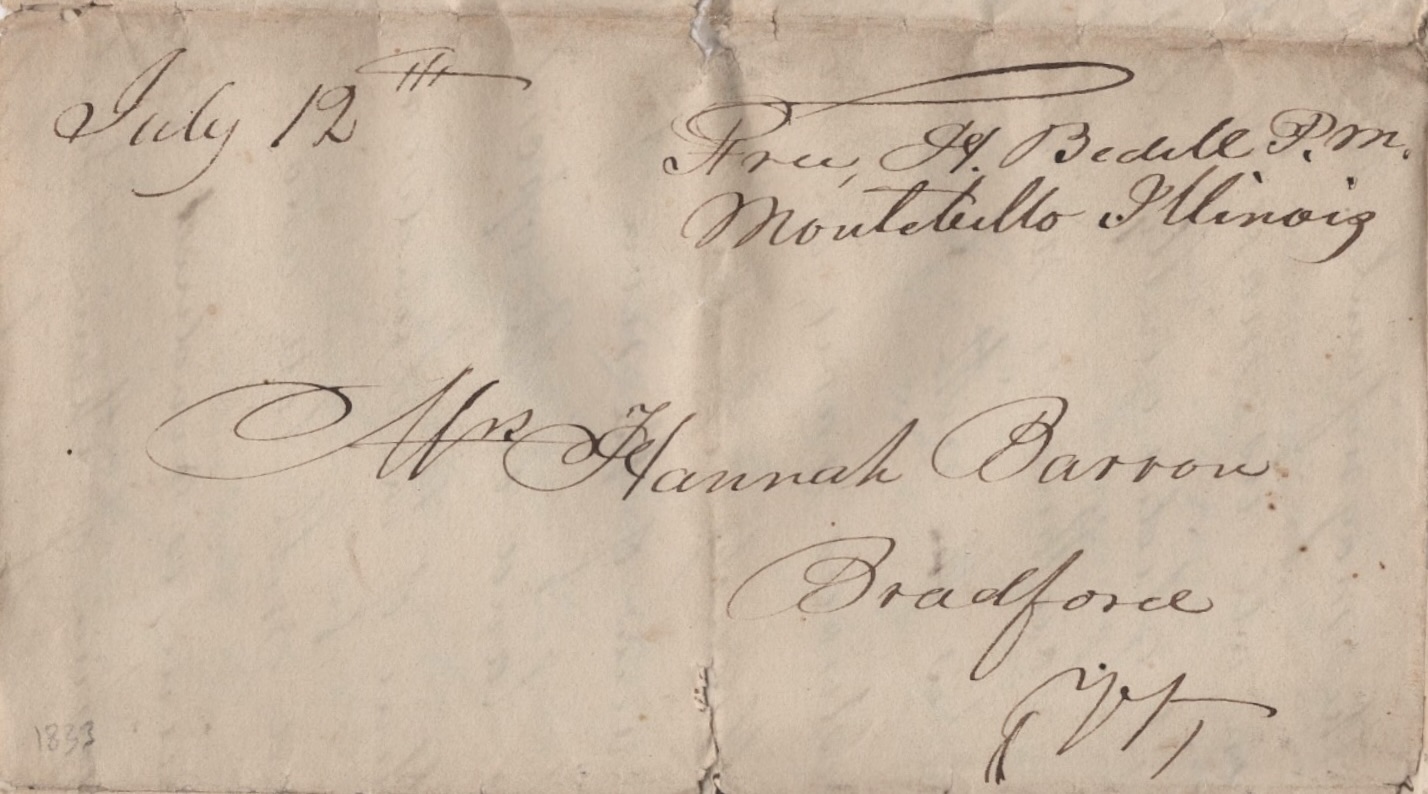 July 12th
Free, H. Bedell P.M.
Montebello Illinois
Mrs Hannah Barron
Bradford
Vt
1833